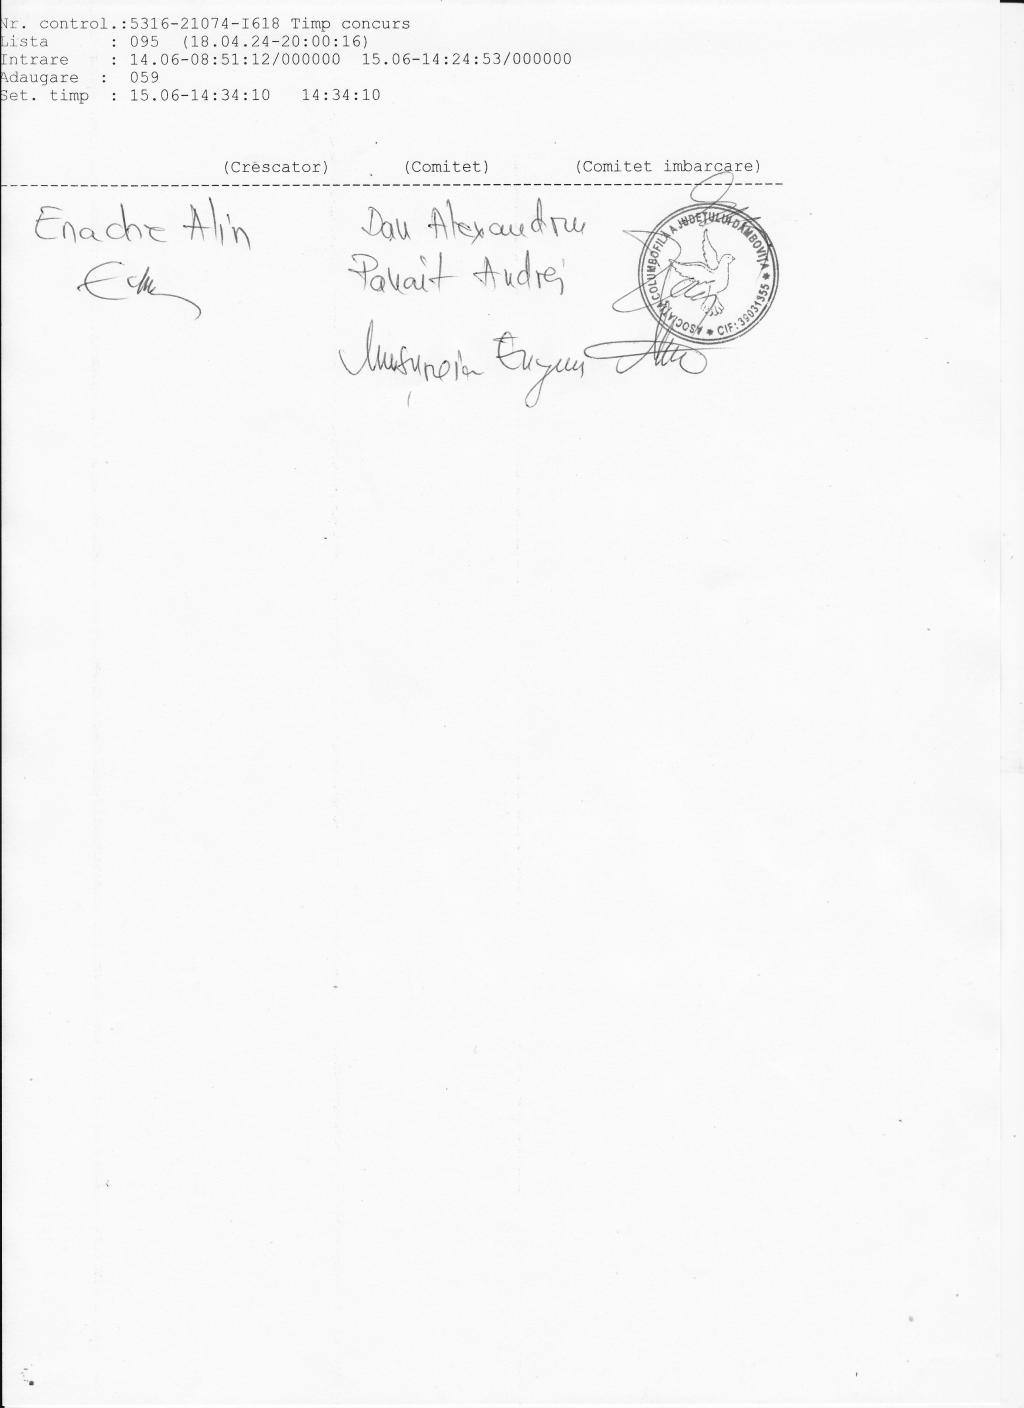 Nr. control.:5316-21074-I618 Timp concurs
Lista : 095 (18.04.24-20:00:16)
Intrare : 14.06-08:51:12/000000 15.06-14:24:53/000000
Adaugare : 059
Set. timp : 15.06-14:34:10 14:34:10
(Crescator) (Comitet) (Comitet imbarcare)
Enache Alin Dan Alexandru
Panait Andrei
Eugen
ASOCIAȚIA COLUMBOFILĂ A JUDEȚULUI DÂMBOVIȚA * CIF: 39031355 *